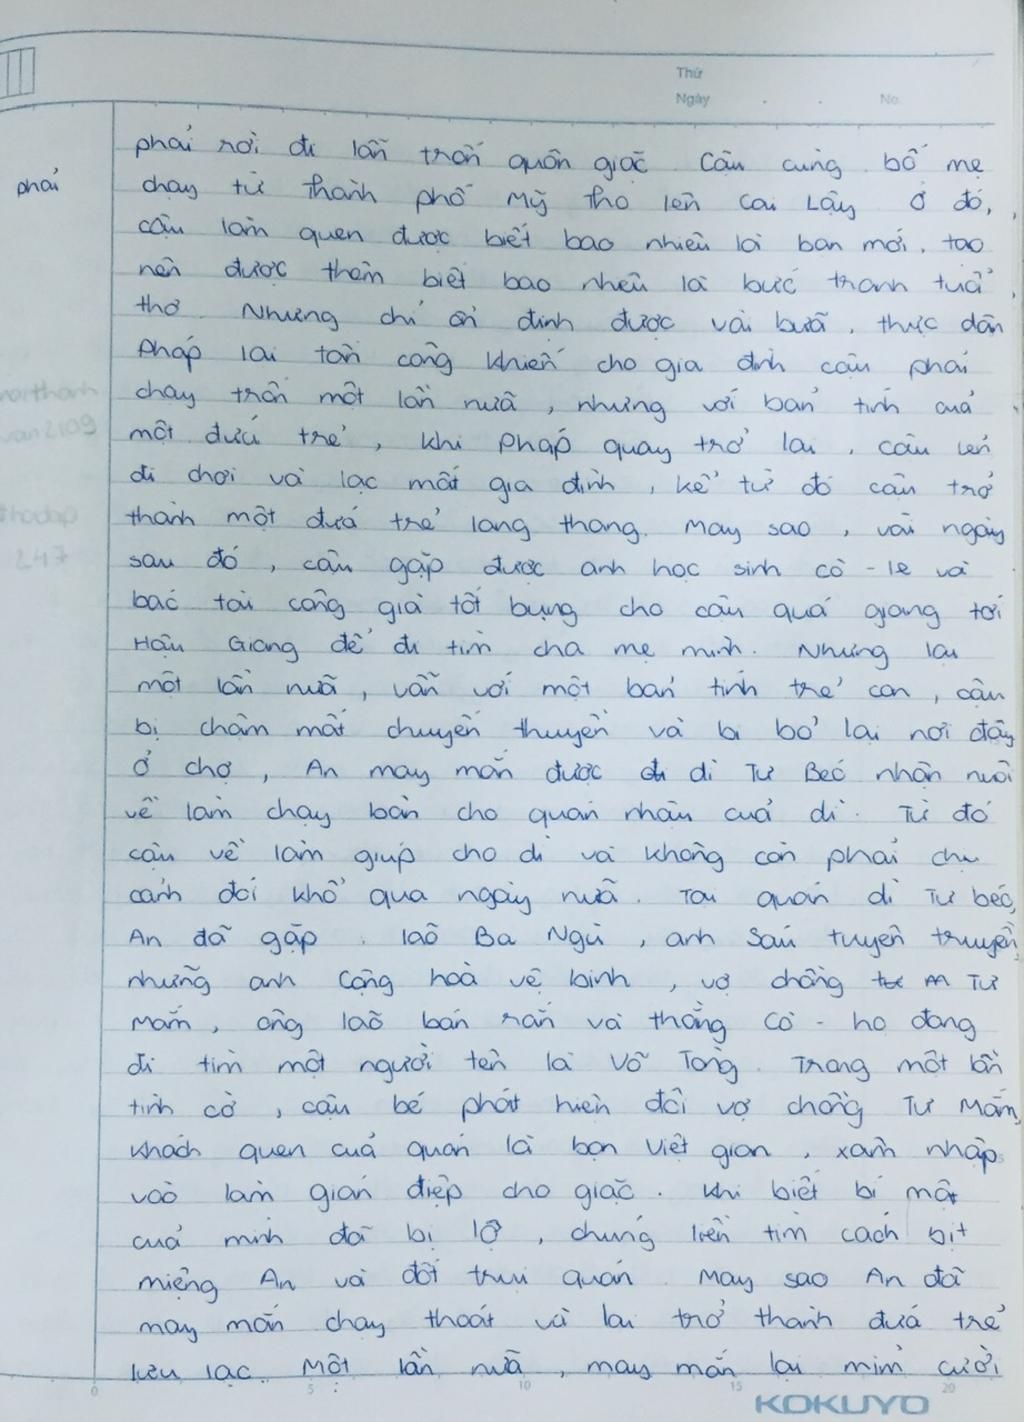 Thứ
Ngày . . No.
phải rời đi lẩn trốn quân giặc. Cậu cùng bố mẹ
phải
chạy từ thành phố Mỹ Tho lên Cai Lậy. Ở đó,
cậu làm quen được biết bao nhiêu là bạn mới, tạo
nên được thêm biết bao nhiêu là bức tranh tuổi
thơ. Nhưng chỉ ổn định được vài bữa, thực dân
Pháp lại tấn công khiến cho gia đình cậu phải
chạy trốn một lần nữa, nhưng với bản tính của
một đứa trẻ, khi Pháp quay trở lại, cậu lén
đi chơi và lạc mất gia đình, kể từ đó cậu trở
thành một đứa trẻ lang thang. May sao, vài ngày
sau đó, cậu gặp được anh học sinh cô-le và
bác tài công già tốt bụng cho cậu quá giang tới
Hậu Giang để đi tìm cha mẹ mình. Nhưng lại
một lần nữa, vẫn với một bản tính trẻ con, cậu
bị chậm mất chuyến thuyền và bị bỏ lại nơi đây
Ở chợ, An may mắn được dì Tư Béo nhận nuôi
về làm chạy bàn cho quán nhậu của dì. Từ đó
cậu về làm giúp cho dì và không còn phải chịu
cảnh đói khổ qua ngày nữa. Tại quán dì Tư béo,
An đã gặp lão Ba Ngù, anh Sáu tuyên truyền,
những anh Cộng hoà vệ binh, vợ chồng Tư
Mắm, ông lão bán rắn và thằng Cò - họ đang
đi tìm một người tên là Võ Tòng. Trong một lần
tình cờ, cậu bé phát hiện đôi vợ chồng Tư Mắm,
khách quen của quán là bọn Việt gian, xâm nhập
vào làm gián điệp cho giặc. Khi biết bí mật
của mình đã bị lộ, chúng liền tìm cách bịt
miệng An và đốt trụi quán. May sao An đã
may mắn chạy thoát và lại trở thành đứa trẻ
lưu lạc. Một lần nữa, may mắn lại mỉm cười
0 5 10 15 20
KOKUYO